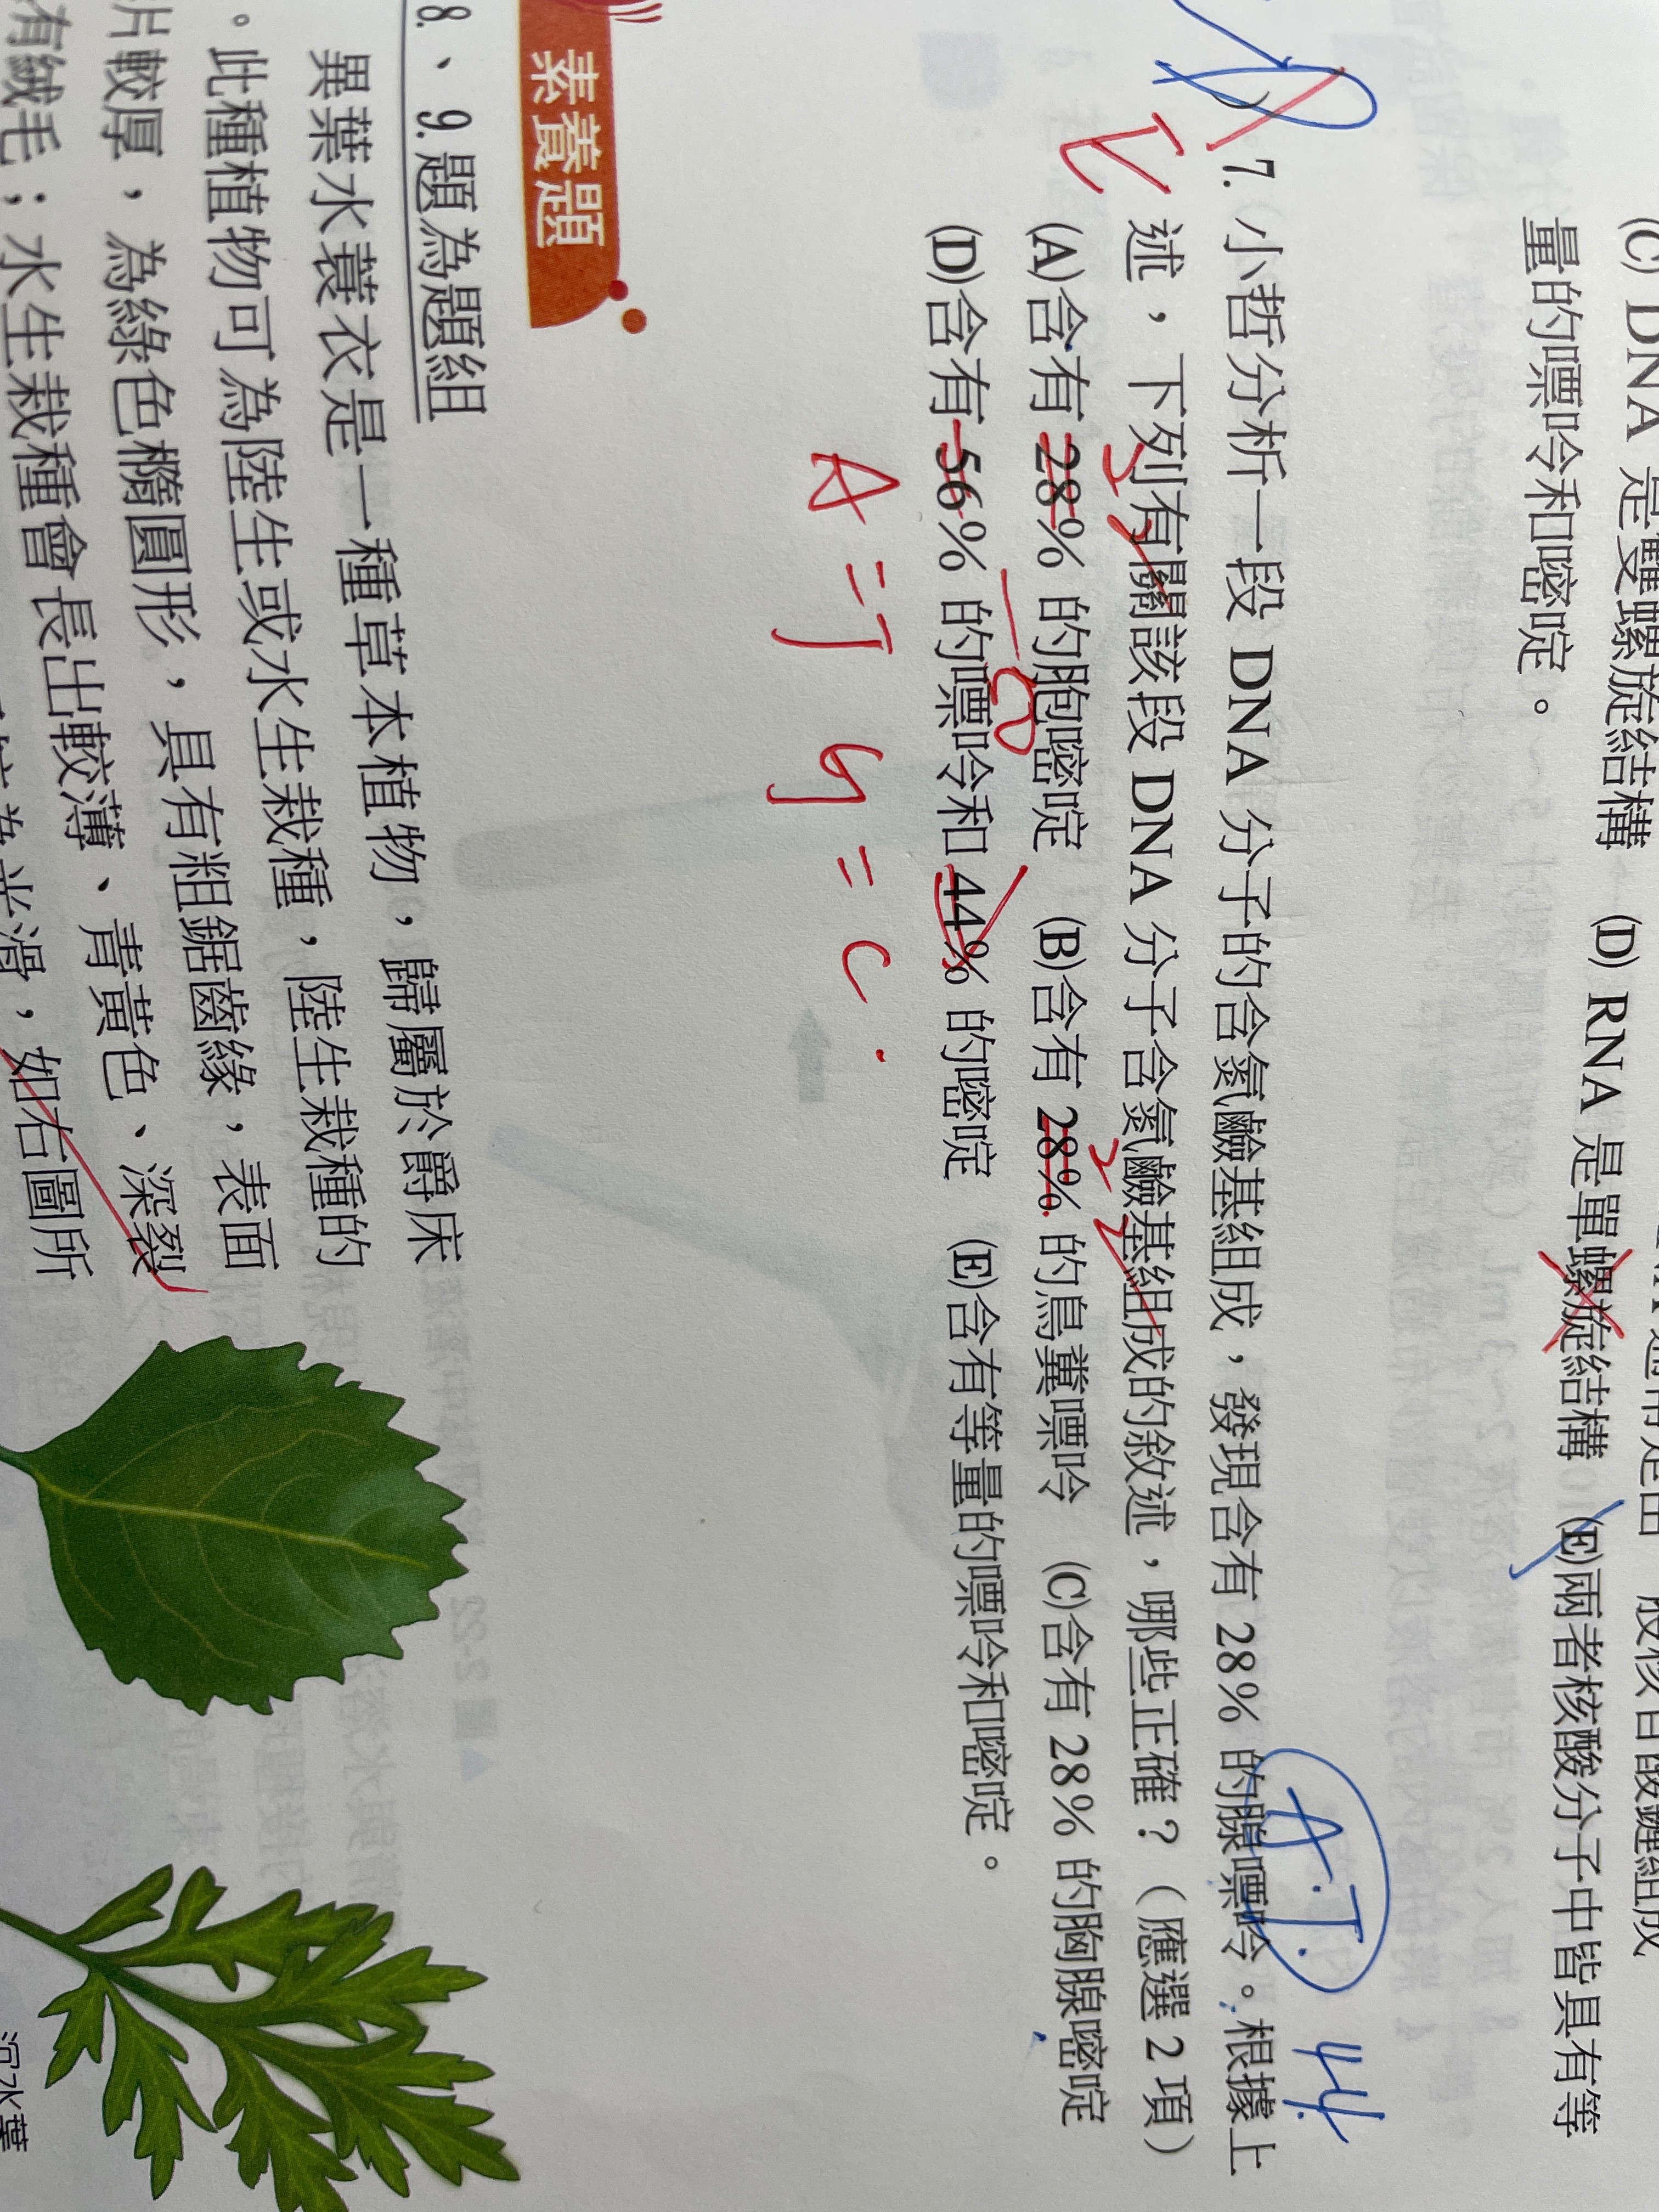 (C) DNA 是雙螺旋結構　(D) RNA 是單螺旋結構　(E)兩者核酸分子中皆具有等
量的嘌呤和嘧啶。
A.T. 44
7. 小哲分析一段 DNA 分子的含氮鹼基組成，發現含有 28% 的腺嘌呤。根據上
述，下列有關該段 DNA 分子含氮鹼基組成的敘述，哪些正確？（應選 2 項）
22
22
(A)含有 28% 的胞嘧啶　(B)含有 28% 的鳥糞嘌呤　(C)含有 28% 的胸腺嘧啶
(D)含有 56% 的嘌呤和 44% 的嘧啶　(E)含有等量的嘌呤和嘧啶。
A = T  G = C.
素養題
8.、9.題為題組
異葉水蓑衣是一種草本植物，歸屬於爵床
。此種植物可為陸生或水生栽種，陸生栽種的
片較厚，為綠色橢圓形，具有粗鋸齒緣，表面
有絨毛；水生栽種會長出較薄、青黃色、深裂
為光滑，如右圖所
沉水葉